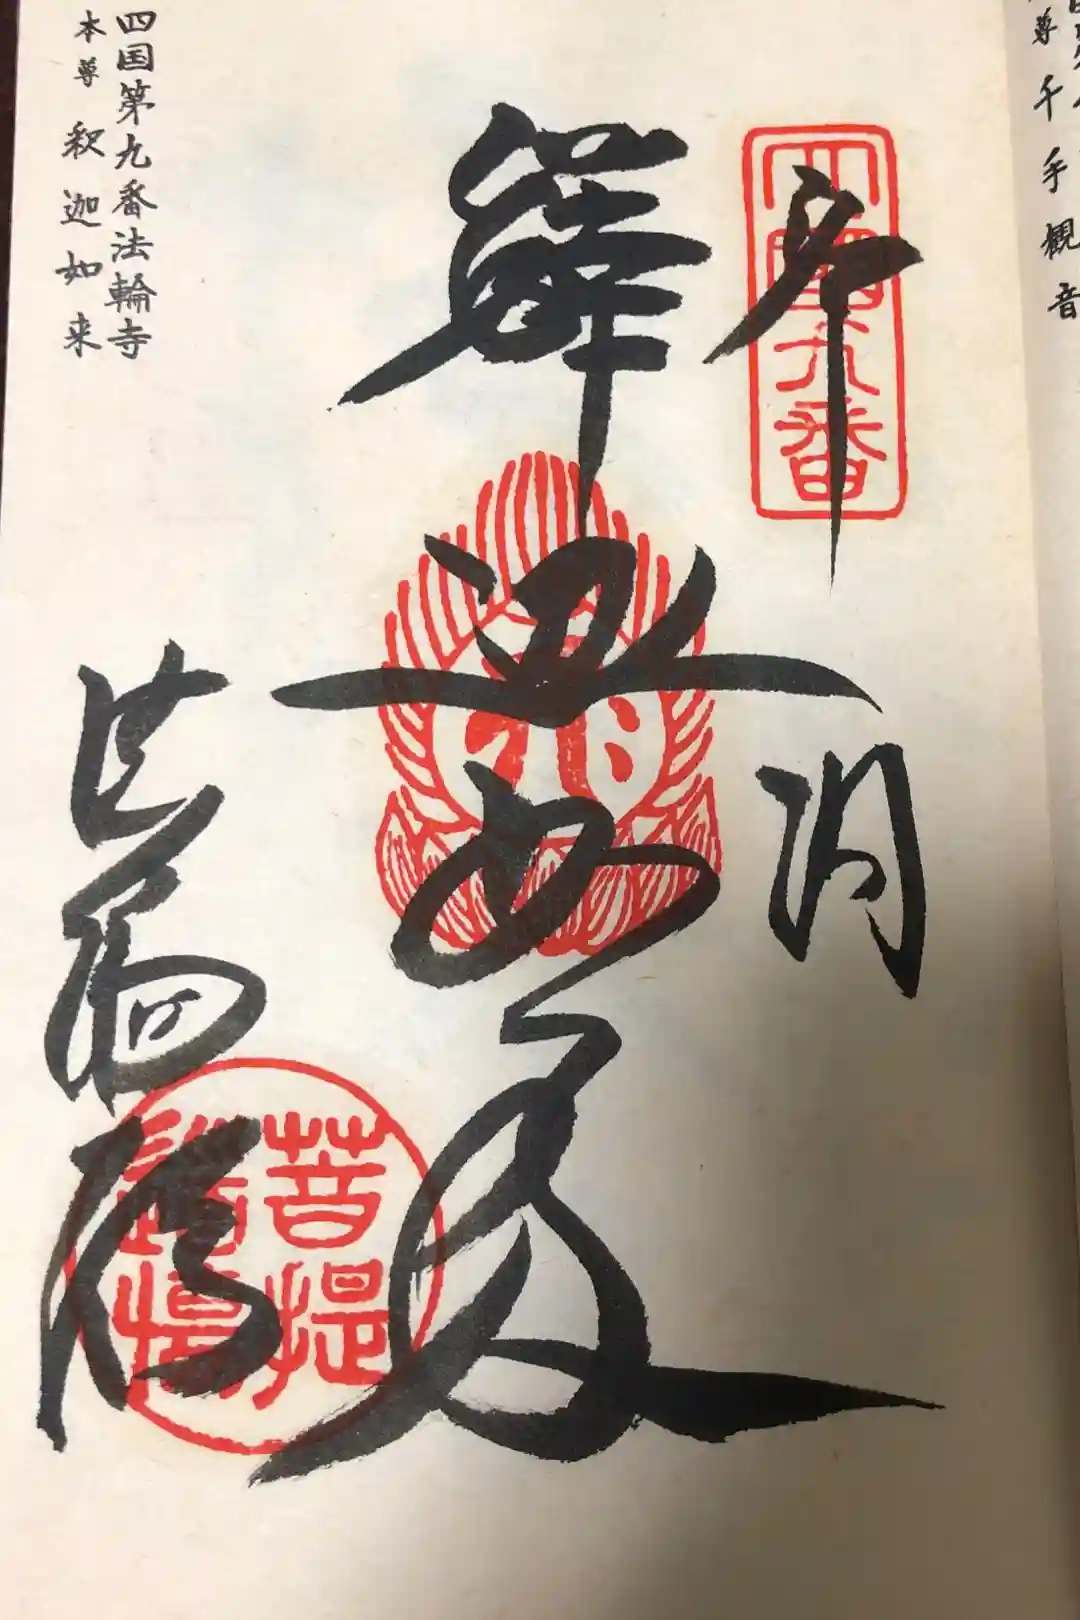 尊千手観音
四國九番
奉納
釋迦如来
法輪寺
菩提
四国第九番法輪寺
本尊 釈迦如来